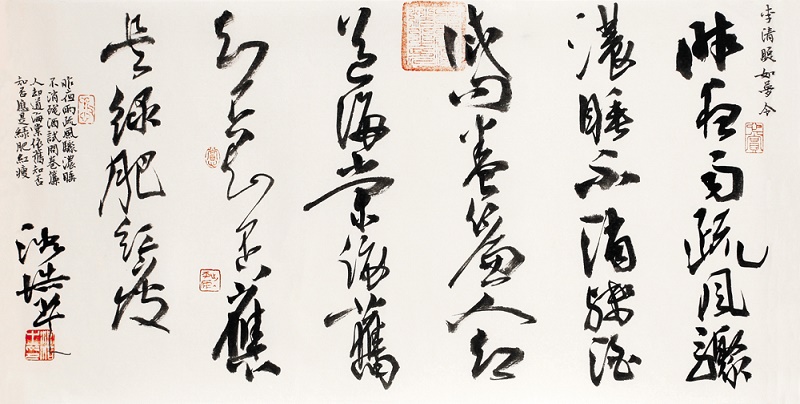 李清照如夢令
昨夜雨疏風驟
濃睡不消殘酒
試問卷簾人知
道海棠依舊
知否知否應
是綠肥紅瘦
昨夜雨疏風驟濃睡
不消殘酒試問卷簾
人知道海棠依舊知否
知否應是綠肥紅瘦